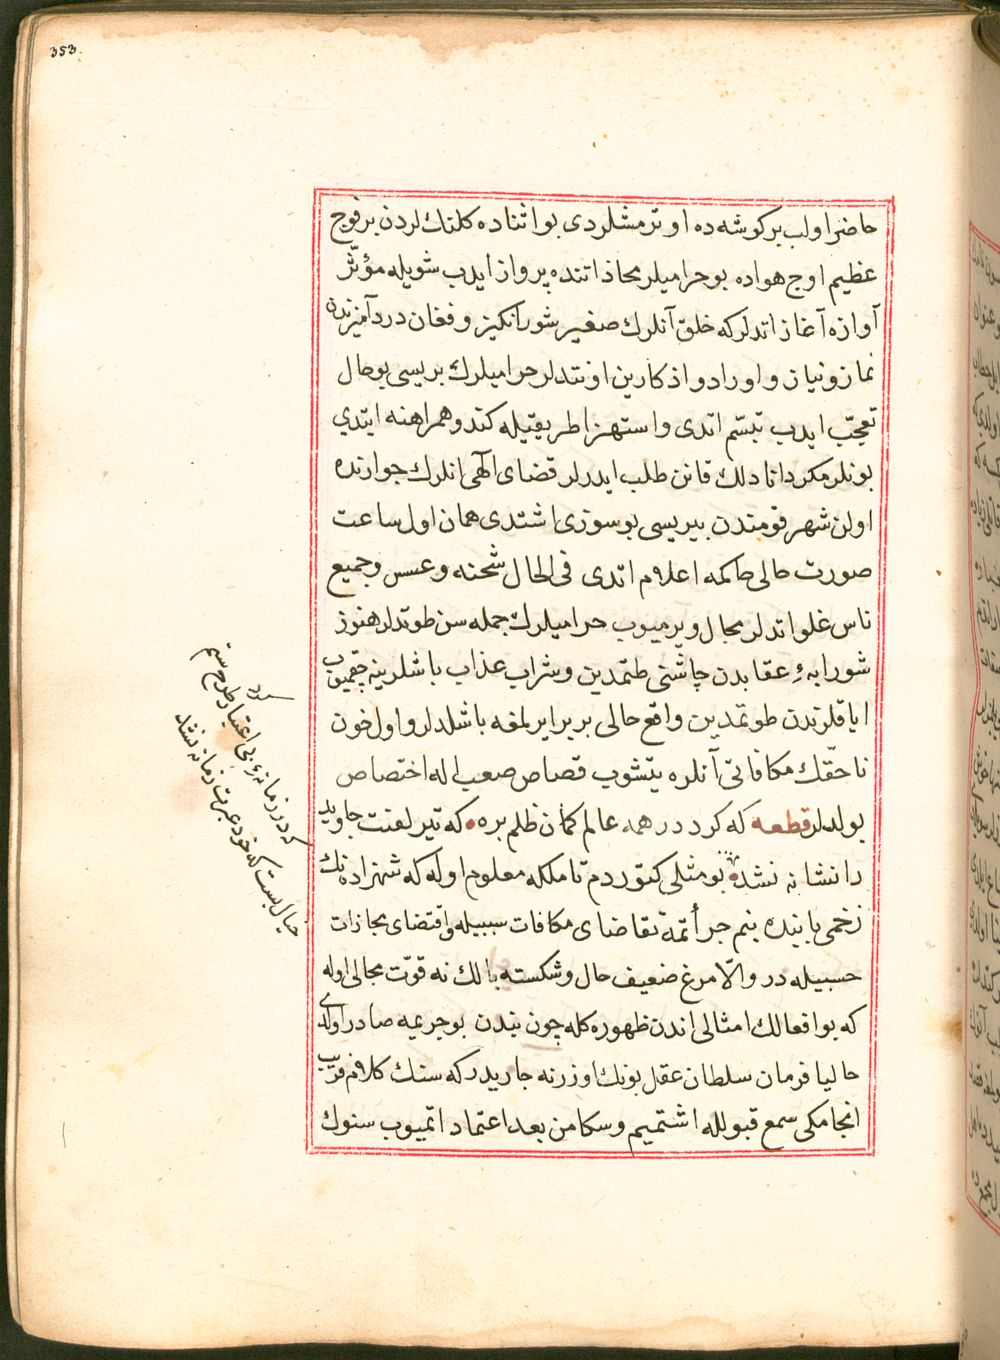 353
حاضر اولب بر كوشه ده اوترمشلردی بو اثناده كلنك لردن بر فوج
عظیم اوج هواده بو حرامیلر محاذاتنده پرواز ایدب شویله مؤثّر
آوازه آغاز اتدلر كه خلق آنلرك صغیر شورانكیز و فغان دردآمیزندن
نماز و نیاز و اوراد و اذكارین اونتدلر حرامیلرك بریسی بو حال
تعجّب ایدب تبسّم اتدی و استهزا طریقتیله كندو همراهنه ایتدی
بونلر مكر دانادلك قانن طلب ایدرلر قضای الٓهی انلرك جوارنده
اولن شهر قومندن بیریسی بو سوزی اشتدی همان اول ساعت
صورت حالی حاكمه اعلام اتدی فی الحال شحنه و عسس و جمیع
ناس غلو اتدلر مجال ویرمیوب حرامیلرك جمله سن طوتدلر هنوز
شورابهٔ عقابدن چاشنی طتمدین و شراب عذاب باشلرینه چقمیوب
ایاقلرندن طوتمدین واقع حالی بربر ایرلمغه باشلدلر و اول خون
ناحقّك مكافاتی آنلره یتشوب قصاص صعب اله اختصاص
بولدلر قطعه كه كرد در همه عالم كمان ظلم بره كه تیر لعنت جاوید
را نشانه نشده بو مثلی كتوردم تا ملكه معلوم اوله كه شهزاده نك
زخمی بابنده بنم جرأتمه تقاضای مكافات سببیله و اقتضای مجازات
حسبیله در والّا مرغ ضعیف حال و شكسته بالك نه قوّت مجالی اوله
كه بو افعالك امثالی اندن ظهوره كله چون بندن بو جریمه صادر اولدی
حالیا فرمان سلطان عقل بونك اوزرنه جاریدر كه سنك كلام فریب
انجامكی سمع قبولله اشتمیم و سكا من بعد اعتماد اتمیوب سنوك
كه در زمانهٔ بی اعتبار طرح ستم
كرد
خیال بست كه خود عبرت زمانه نشد